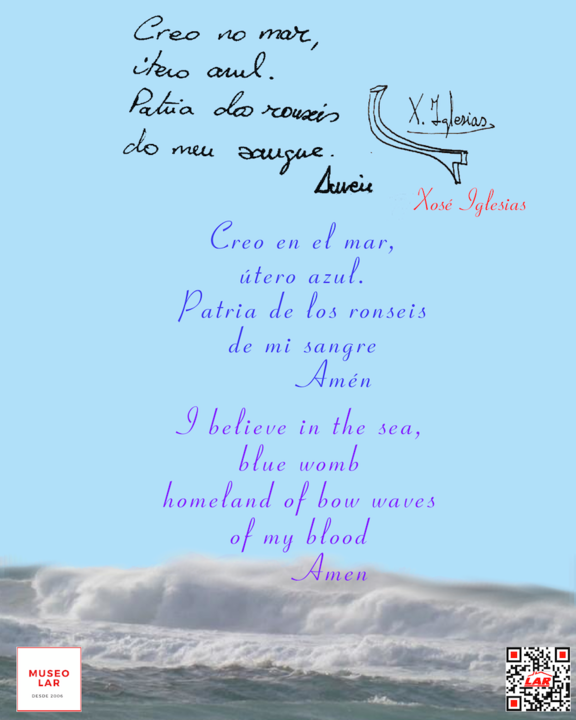 Creo no mar,
útero azul.
Patria dos ronseis
do meu sangue.
Amén
X. Iglesias
Xosé Iglesias
Creo en el mar,
útero azul.
Patria de los ronseis
de mi sangre
Amén
I believe in the sea,
blue womb
homeland of bow waves
of my blood
Amen
MUSEO
LAR
DESDE 2006
LAR